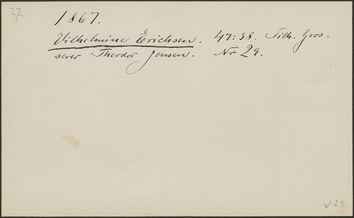 37.
1867.
Vilhelmine Erichsen. 47:38. Tilh. Gros-
serer Theodor Jensen. Nr 29.